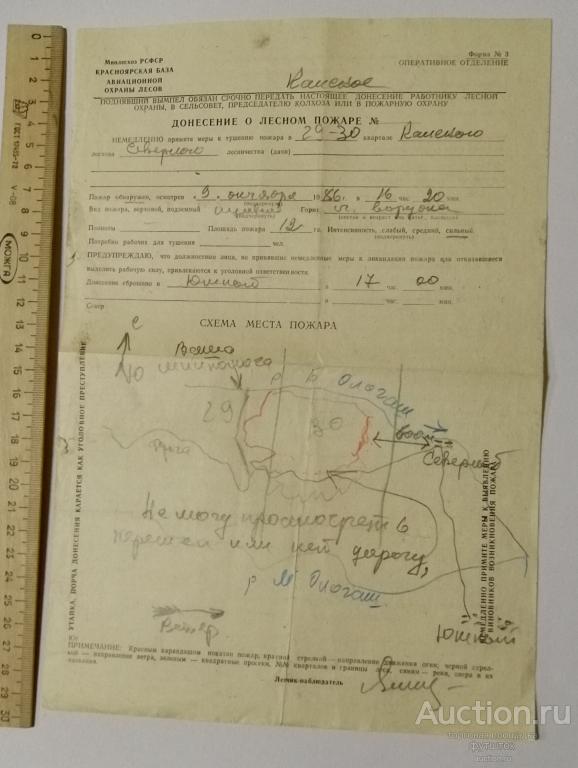 Минлесхоз РСФСР
КРАСНОЯРСКАЯ БАЗА
АВИАЦИОННОЙ
ОХРАНЫ ЛЕСОВ
Форма № 3
ОПЕРАТИВНОЕ ОТДЕЛЕНИЕ
Канское
ПОДНЯВШИЙ ВЫМПЕЛ ОБЯЗАН СРОЧНО ПЕРЕДАТЬ НАСТОЯЩЕЕ ДОНЕСЕНИЕ РАБОТНИКУ ЛЕСНОЙ
ОХРАНЫ, В СЕЛЬСОВЕТ, ПРЕДСЕДАТЕЛЮ КОЛХОЗА ИЛИ В ПОЖАРНУЮ ОХРАНУ
ДОНЕСЕНИЕ О ЛЕСНОМ ПОЖАРЕ №
НЕМЕДЛЕННО примите меры к тушению пожара в 29-30 квартале Канского
лесхоза Северного лесничества (дачи)
Пожар обнаружен, осмотрен 9 октября 1986 г. в 16 час. 20 мин.
Вид пожара, верховой, подземный Горит
(подчеркнуть)
Полноты Площадь пожара 12 га. Интенсивность, слабый, средний, сильный.
(подчеркнуть)
Потребно рабочих для тушения чел.
ПРЕДУПРЕЖДАЮ, что должностные лица, не принявшие немедленные меры к ликвидации пожара или отказавшиеся
выделить рабочую силу, привлекаются к уголовной ответственности.
Донесение сброшено в Южной в 17 час. 00 мин.
Север
СХЕМА МЕСТА ПОЖАРА
С
Ю
29
30
р Б Ологаш
Северный
Не могу просмотреть
перешел или нет дорогу,
р М Ологаш
Ветер
Южный
УТАЙКА, ПОРЧА ДОНЕСЕНИЯ КАРАЕТСЯ КАК УГОЛОВНОЕ ПРЕСТУПЛЕНИЕ
НЕМЕДЛЕННО ПРИМИТЕ МЕРЫ К ВЫЯВЛЕНИЮ
ВИНОВНИКОВ ВОЗНИКНОВЕНИЯ ПОЖАРА
Юг
ПРИМЕЧАНИЕ: Красным карандашом показан пожар, красной стрелкой — направление движения огня; черной стрел-
кой — направление ветра, зеленым — квадратные просеки, №№ кварталов и границы леса, синим — реки, озера и их
названия.
Летчик-наблюдатель
0 1 2 3 4 5 6 7 8 9 10 11 12 13 14 15 16 17 18 19 20 21 22 23 24 25 26 27 28 29 30
МОЖГА
Auction.ru
торговая площадка
футшток
auction.ru